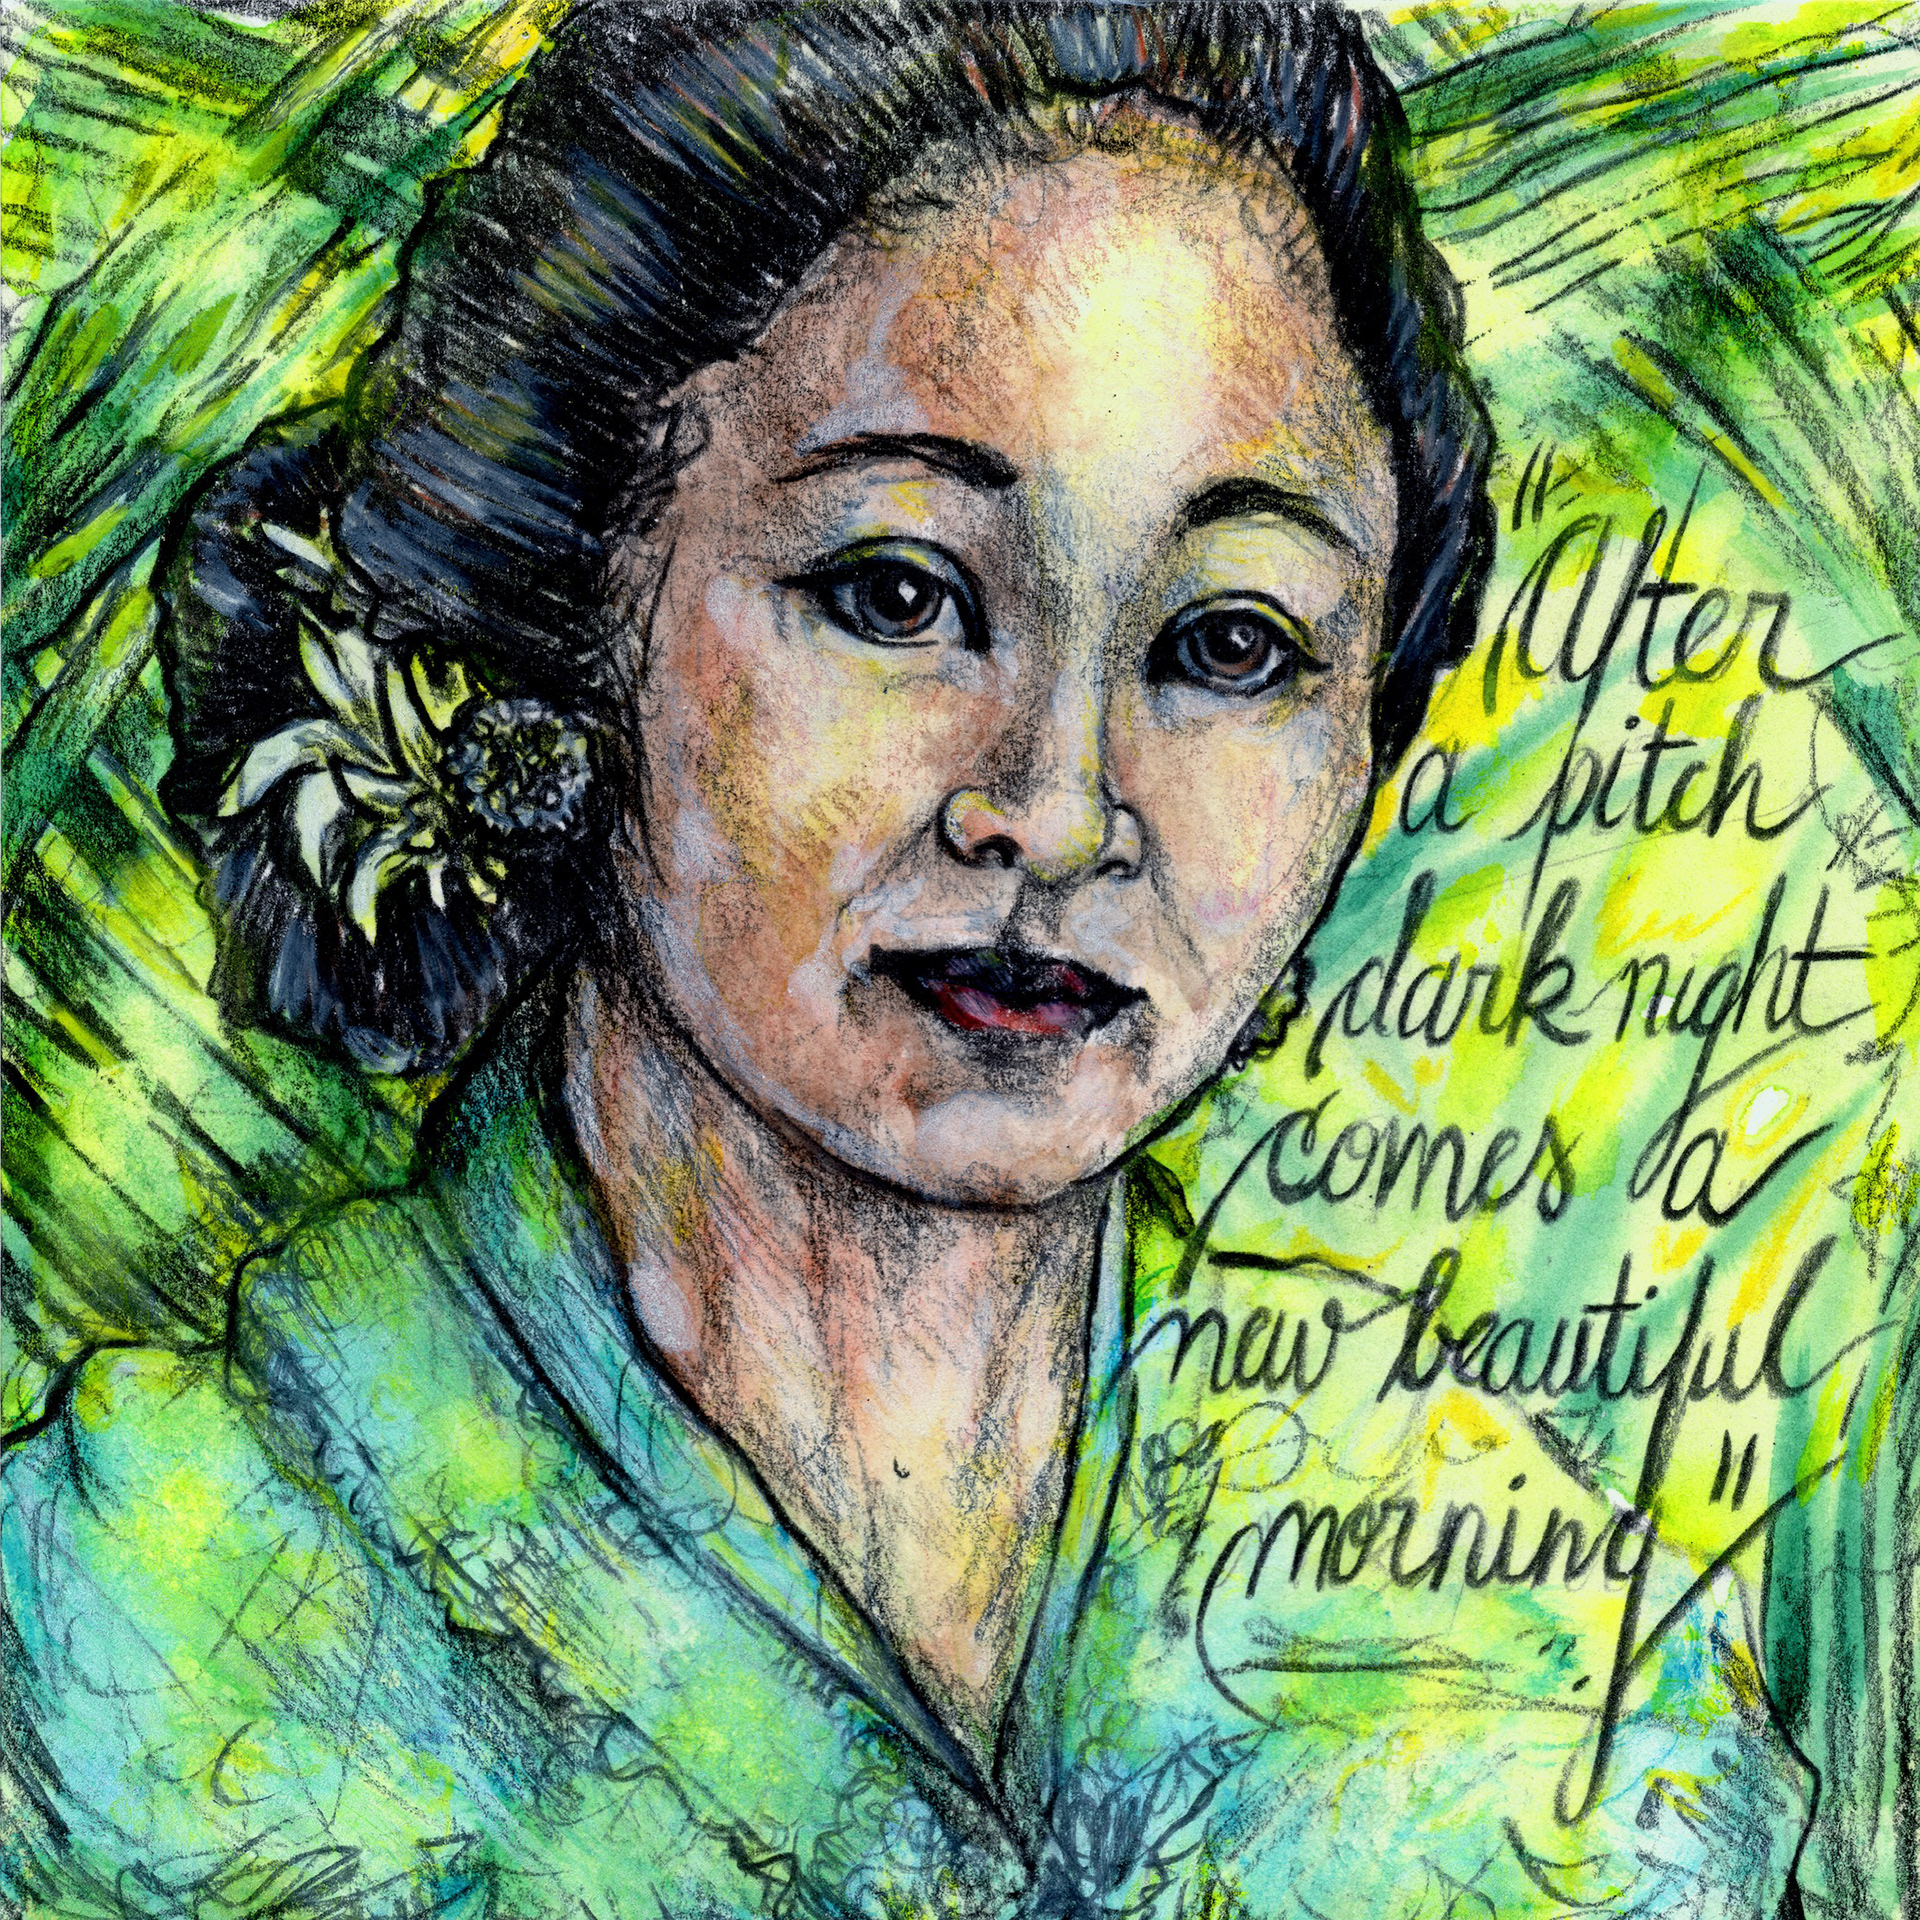 "After
a pitch
dark night
comes a
new beautiful
morning"